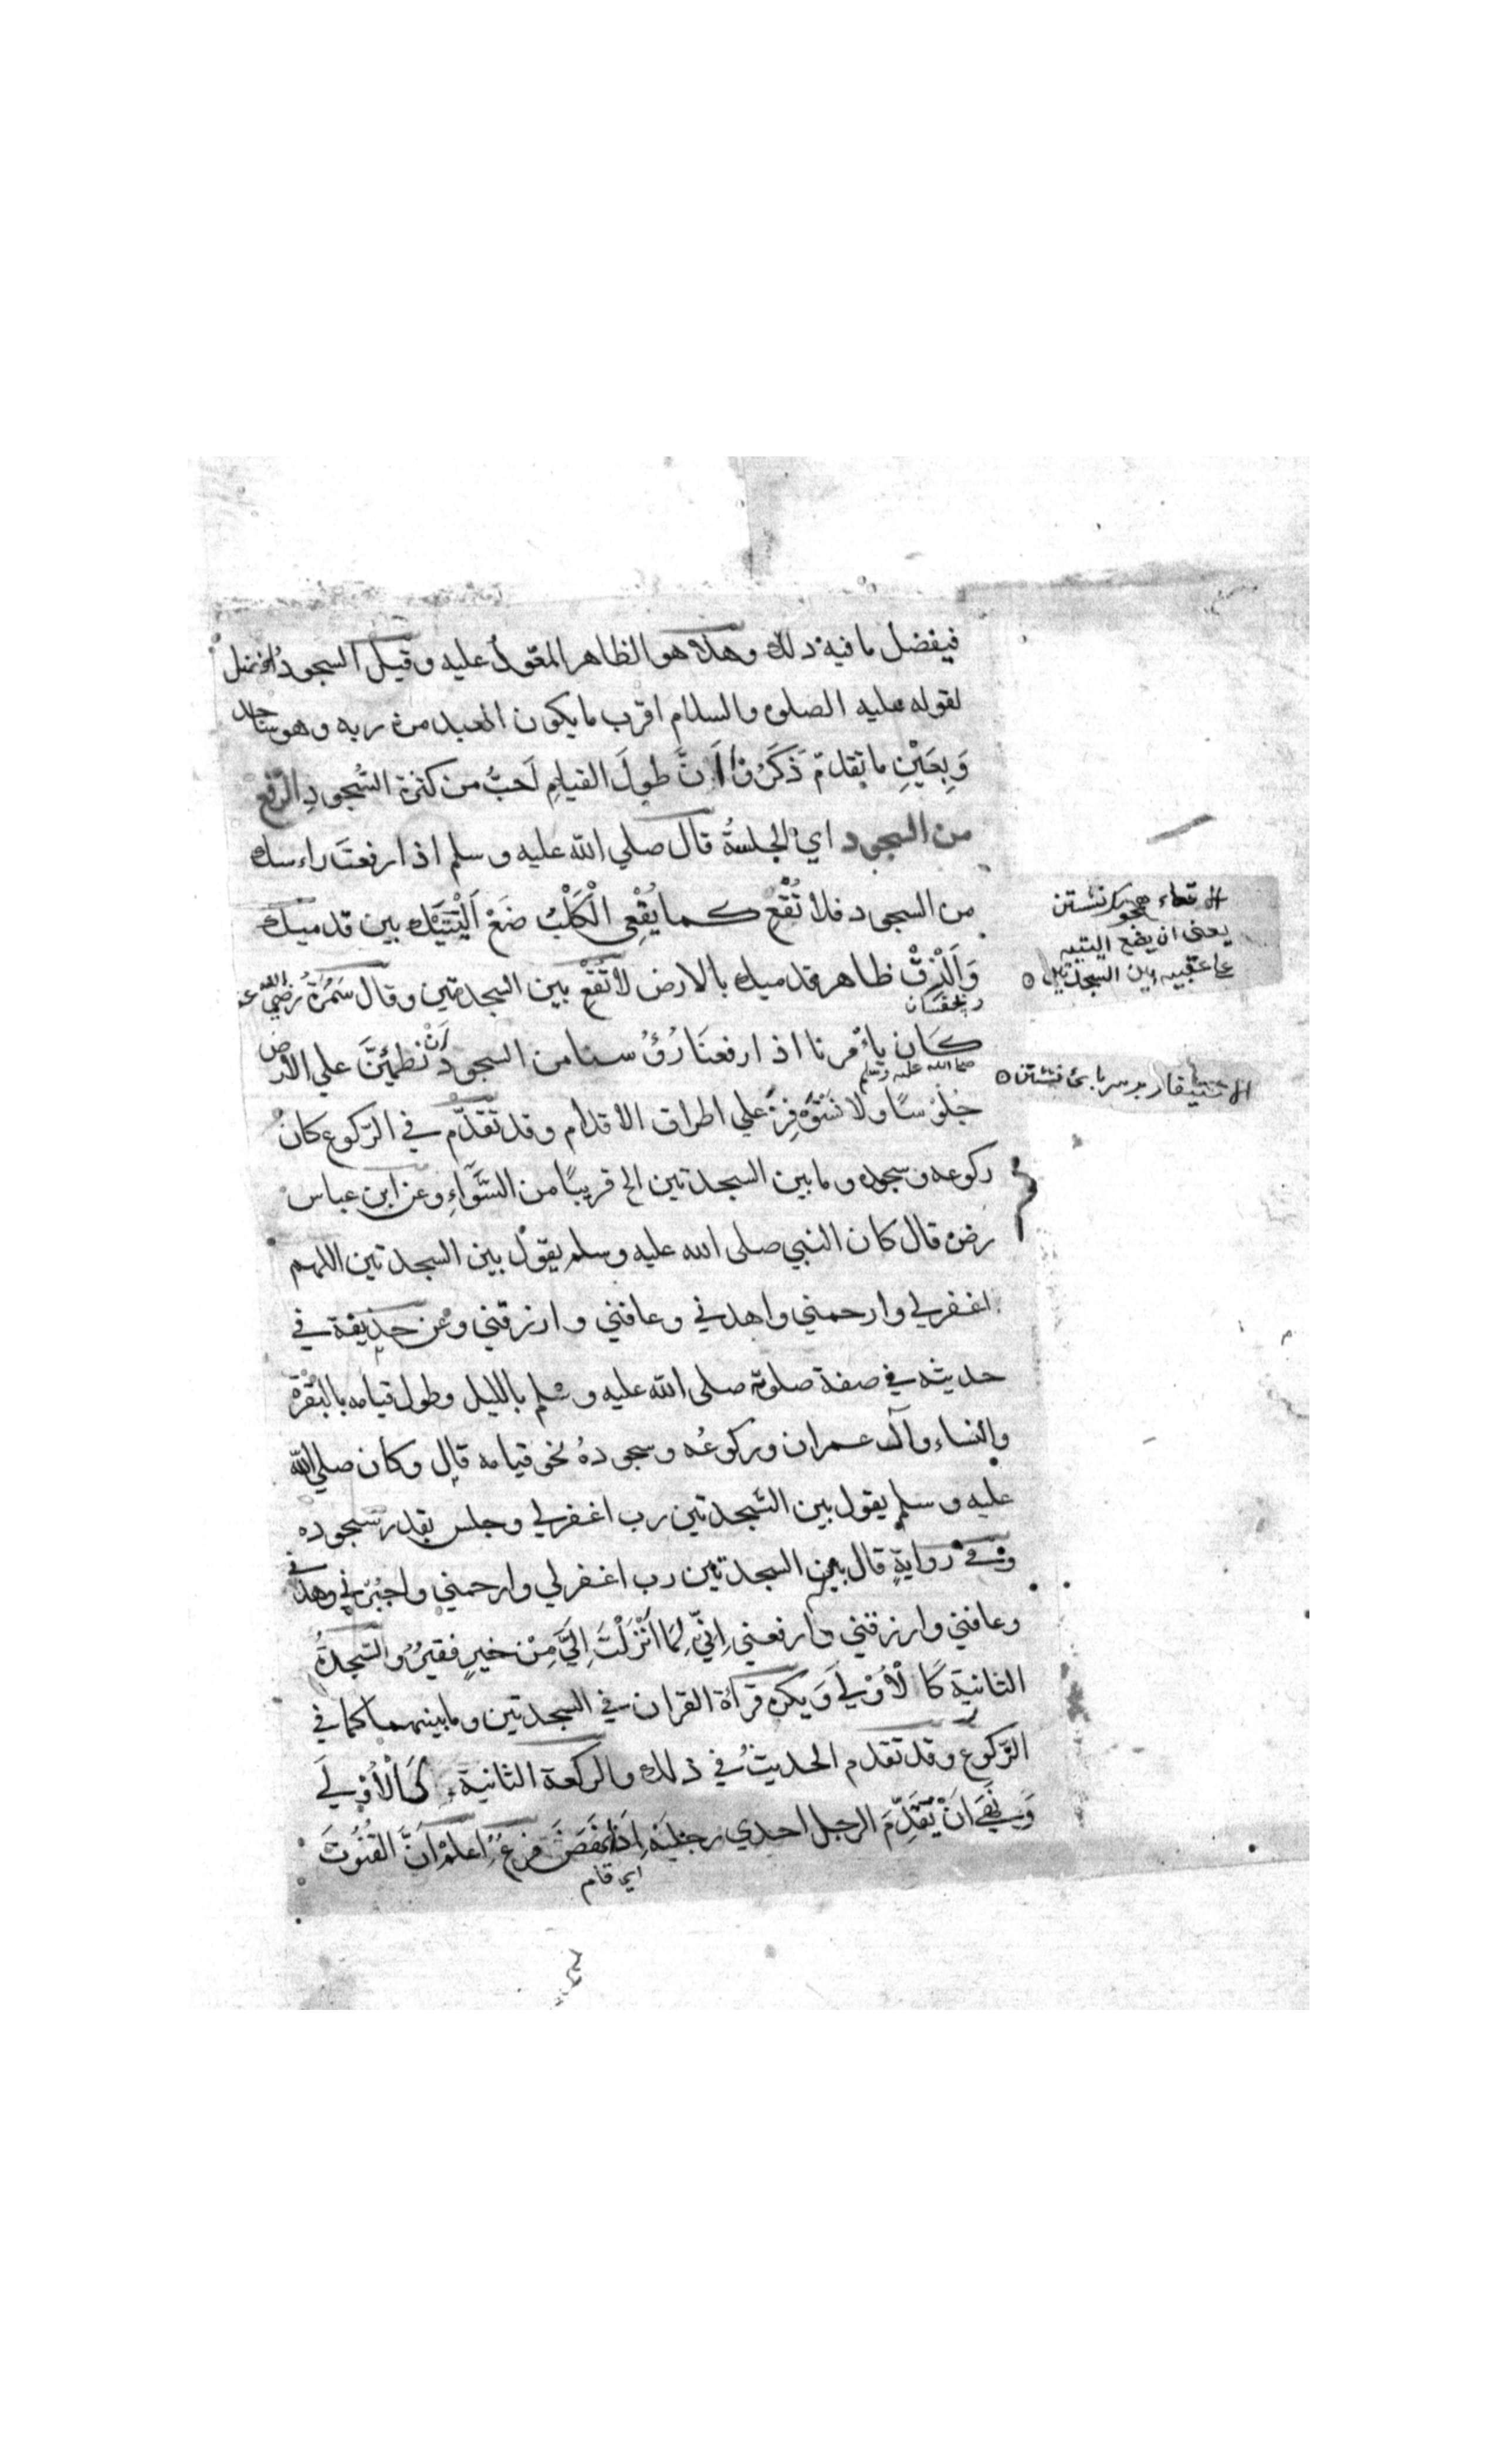 فيفضل ما فيه ذلك وهذا هو الظاهر المعوّل عليه وقيل السجود افضل
لقوله عليه الصلوه والسلام اقرب ما يكون العبد من ربه وهو ساجد
وَبِعَيْنِ ما تقدمّ ذَكَرُنا اَنَّ طولَ القيامِ اَحبُّ من كثرة السُّجودِ الرّفع
من السجود اي الجلسةُ قال صلي الله عليه وسلم اذا رفعتَ راءسك
من السجود فلا تُقْعِ كما يُقْعِي الْكَلْبُ ضَعْ اَلْيَتَيْك بين قدميك
وَاَلْزِقْ ظاهر قدميك بالارض لا تُقْعِ بين السجدتين وقال سَمُرَةُ رضي الله عنه
كَان ياءْمرنا اذا رفعنَا رُؤُسنا من السجود اَنْ نطمئِنَّ علي الارض
صلى الله عليه وسلم
جُلوْسًا ولا نَسْتَوْفِزَ علي اطراف الاقدام وقد تقدّم في الرّكوع كانَ
ركوعه وسجوده وما بين السجدتين الخ قريبًا من السَّوَآءِ وعن ابن عباس
رضي قال كان النبي صلى الله عليه وسلم يقول بين السجدتين اللهم
اغفرلي وارحمني واهدني وعافني وارزقني وعن حذيفة في
حديثه في صفة صلوته صلى الله عليه وسلم بالليل وطول قيامه بالبقرة
والنساء وآل عمران وركوعُه وسجودهُ نحو قيامه قال وكان صلي الله
عليه وسلم يقول بين السّجدتين رب اغفرلي وجلس بقدر سجوده
وفي رواية قال بين السجدتين رب اغفرلي وارحمني واجبُرني واهدني
وعافني وارزقني وارفعني اِنّي لِمَا اَنْزَلْتَ اِلَيَّ مِنْ خيرٍ فقيرٌ والسّجدةُ
الثانية كَالْاُوْلَي وَيكره قرآءة القران في السجدتين وما بينهما كما في
الرّكوع وقد تقدم الحديثُ في ذلك والركعة الثانية كَالْاُوْلَي
اَنْ يُقَدِّمَ الرجل احدي رجليه اِذَا نهَضَ فرعٌ اعلمْ اَنَّ القُنُوتَ
اي قام
الاقعاء همچو نشستن
يعنى ان يضع اليتيه
على عقبيه بين السجدتين
الاستيفاز بر سر پاى نشستن